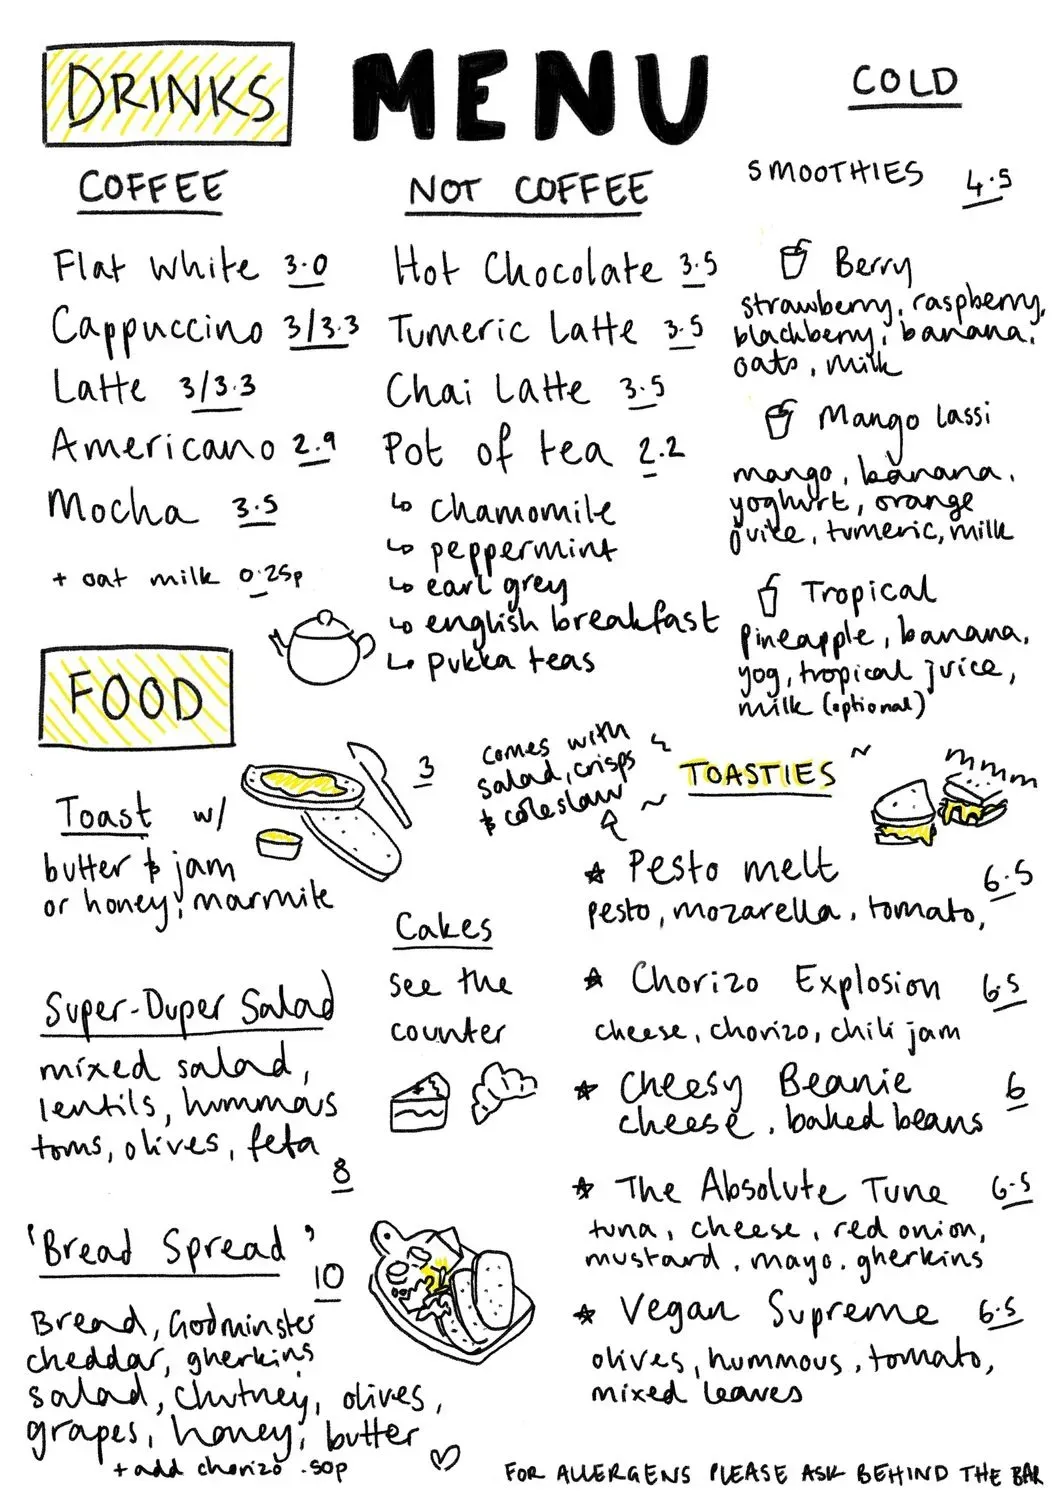 DRINKS
MENU
COLD
COFFEE
Flat White 3.0
Cappuccino 3/3.3
Latte 3/3.3
Americano 2.9
Mocha 3.5
+ oat milk 0.25p
NOT COFFEE
Hot Chocolate 3.5
Tumeric Latte 3.5
Chai Latte 3.5
Pot of tea 2.2
↳ chamomile
↳ peppermint
↳ earl grey
↳ english breakfast
↳ pukka teas
SMOOTHIES 4.5
Berry
strawberry, raspberry,
blackberry, banana,
oats, milk
Mango lassi
mango, banana,
yoghurt, orange
juice, tumeric, milk
Tropical
pineapple, banana,
yog, tropical juice,
milk (optional)
FOOD
Toast w/ 3
butter & jam
or honey, marmite
Super-Duper Salad
mixed salad,
lentils, hummous
toms, olives, feta
8
'Bread Spread'
10
Bread, Godminster
cheddar, gherkins
salad, chutney, olives,
grapes, honey, butter
+ add chorizo .50p
Cakes
see the
counter
comes with
salad, crisps
& coleslaw
TOASTIES
Pesto melt 6.5
pesto, mozarella, tomato,
Chorizo Explosion 6.5
cheese, chorizo, chili jam
Cheesy Beanie 6
cheese, baked beans
The Absolute Tune 6.5
tuna, cheese, red onion,
mustard, mayo, gherkins
Vegan Supreme 6.5
olives, hummous, tomato,
mixed leaves
FOR ALLERGENS PLEASE ASK BEHIND THE BAR